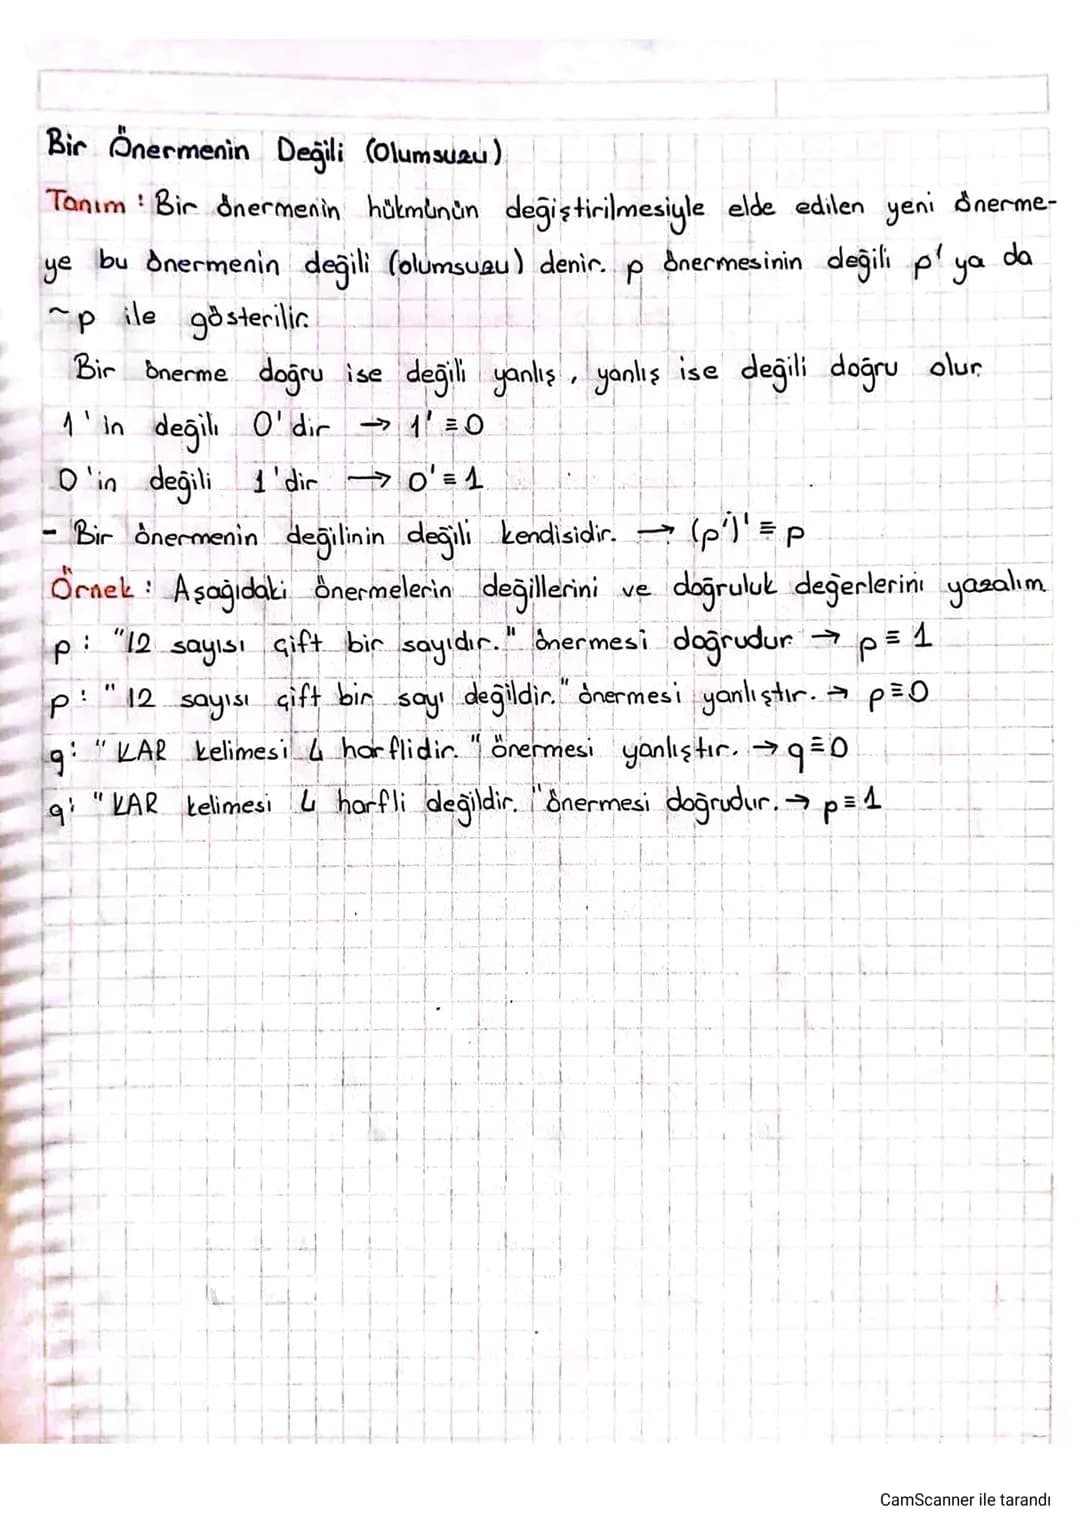 Bir Önermenin Değili (Olumsuzu)
Tanım : Bir önermenin hükmünün değiştirilmesiyle elde edilen yeni önerme-
ye bu önermenin değili (olumsuzu) denir. p önermesinin değili p' ya da
~p ile gösterilir.
Bir önerme doğru ise değili yanlış, yanlış ise değili doğru olur.
1'in değili 0'dir → 1' ≡ 0
0'in değili 1'dir → 0' ≡ 1
- Bir önermenin değilinin değili kendisidir. → (p')' ≡ p
Örnek : Aşağıdaki önermelerin değillerini ve doğruluk değerlerini yazalım
p: "12 sayısı çift bir sayıdır." önermesi doğrudur → p ≡ 1
p: "12 sayısı çift bir sayı değildir." önermesi yanlıştır. → p ≡ 0
q: "KAR kelimesi 4 harflidir." önermesi yanlıştır. → q ≡ 0
q: "KAR kelimesi 4 harfli değildir." önermesi doğrudur. → p ≡ 1
CamScanner ile tarandı